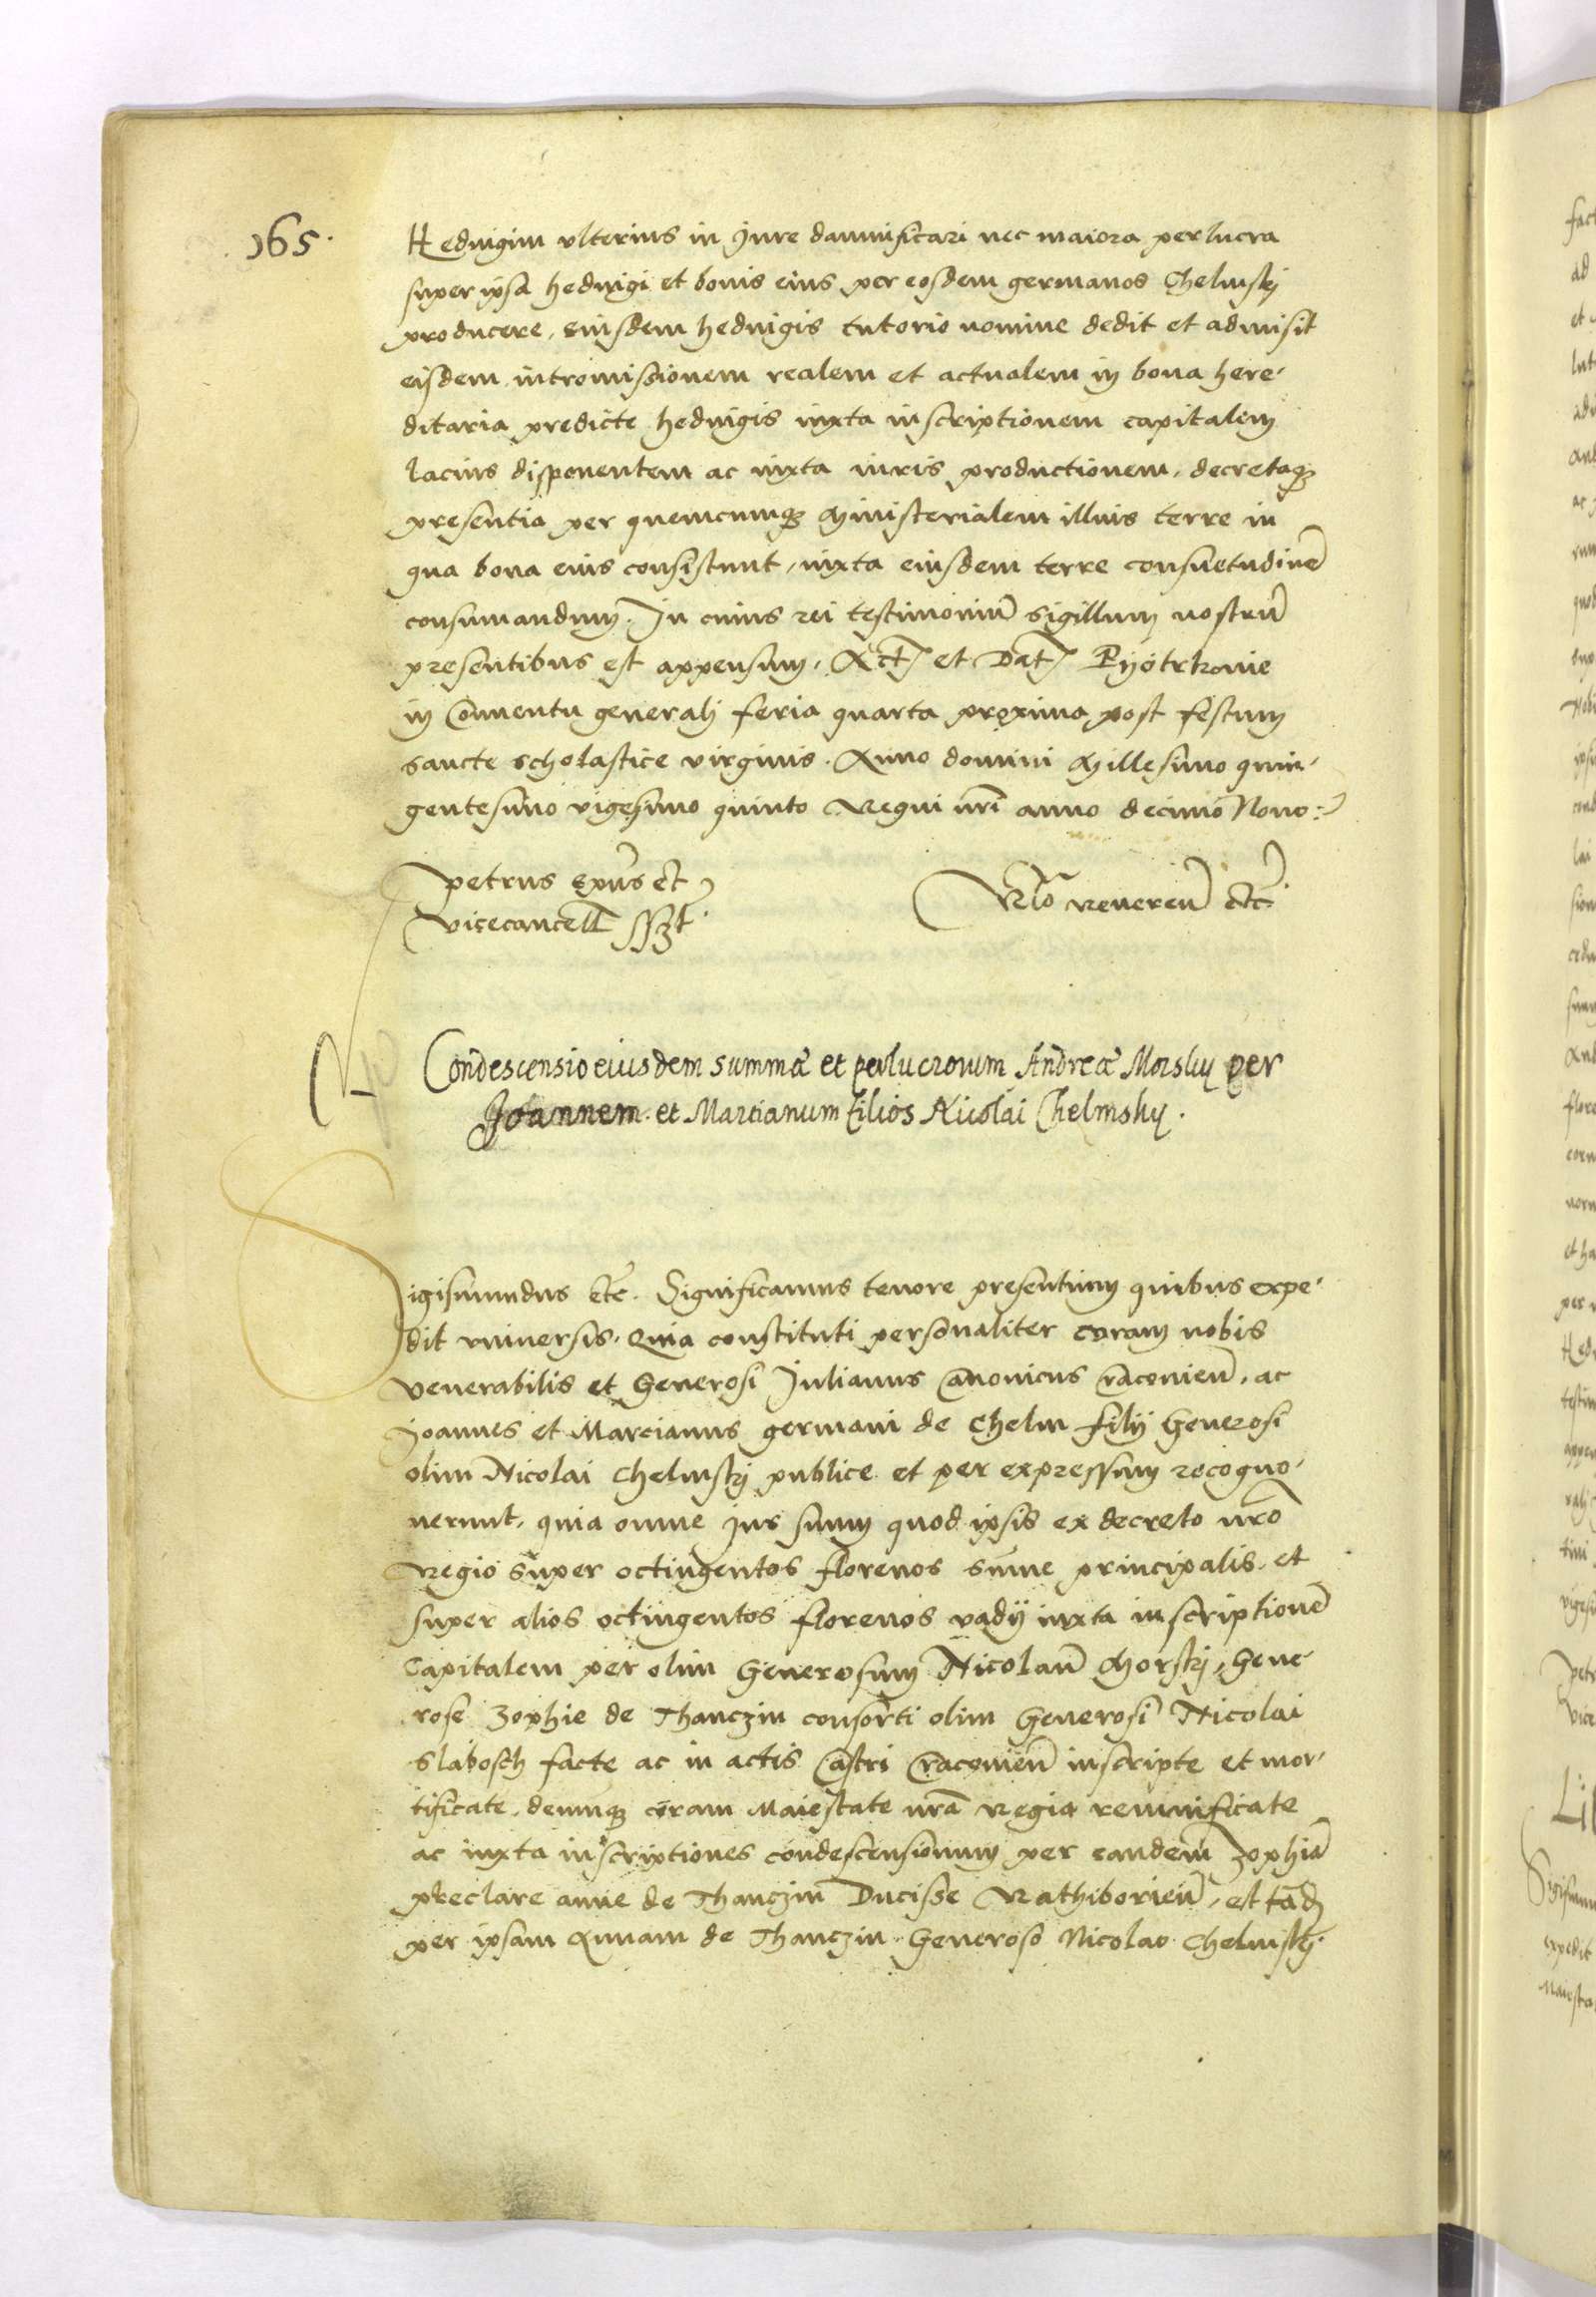 165.
Hedvigim vlterius in Jure damnificari nec maiora perlucra
super ipsa hedvigi et bonis eius per eosdem germanos Chelmskj
producere, eiusdem hedvigis tutorio nomine dedit et admisit
eisdem intromissionem realem et actualem in bona here-
ditaria predicte hedvigis iuxta inscriptionem capitalem
lacius disponentem ac iuxta iuris productionem, decretaqꝫ
presentia per quemcumqꝫ Ministerialem illius terre in
qua bona eius consistunt, iuxta eiusdem terre consuetudinē
consumandum. In cuius rei testimoniū sigillum nostrū
presentibus est appensum. Act et Dat Pyotrkovie
in Conventu generalj feria quarta proxima post festum
sancte scholastice virginis. Anno domini Millesimo quin-
gentesimo vigesimo quinto Regni nrī anno decimo Nono:
petrus epūs etc
vicecancell sszt.
Rlo reveren̄ etc.
Condescensio eiusdem summæ et perlucrorum Andreæ Morsky per
Joannem et Martianum filios Nicolai Chelmsky.
Sigismundus etc. Significamus tenore presentium quibus expe-
dit vniversis. Quia constituti personaliter coram nobis
venerabilis et Generosi Julianus Canonicus Cracovien̄, ac
Joannes et Marcianus germani de Chelm filij Generosi
olim Nicolai Chelmskj publice et per expressum recogno-
verunt, quia omne Jus suum quod ipsis ex decreto nrō
Regio super octingentos florenos sūme principalis et
super alios octingentos florenos vadij iuxta inscriptionē
Capitalem per olim Generosum Nicolaū Morskj, Gene-
rose Zophie de Thanczin consorti olim Generosi Nicolai
Slabosch facte ac in actis Castri Cracovien̄ inscripte et mor-
tificate, demuqꝫ coram Maiestate nrā Regia revivificate
ac iuxta inscriptiones condescensionum per eandem Zophiā
preclare anne de Thanczin Ducisse Rathiborien̄, et tādꝫ
per ipsam Annam de Thanczin Generoso Nicolao Chelmskj.